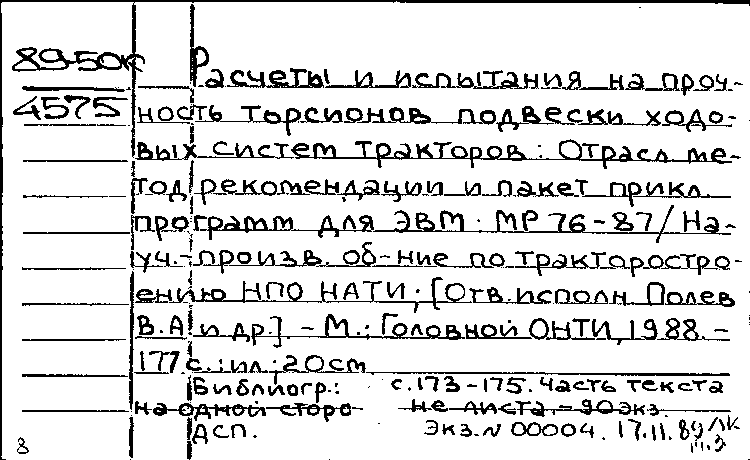 89-50к
4575
Расчеты и испытания на проч-
ность торсионов подвески ходо-
вых систем тракторов: Отрасл. ме-
тод. рекомендации и пакет прикл.
программ для ЭВМ: МР 76-87/На-
уч.-произв. об-ние по тракторостро-
ению НПО НАТИ; [Отв. исполн. Полев
В.А. и др.]. - М.: Головной ОНТИ, 1988. -
177 с.: ил.; 20 см
Библиогр.: с. 173-175. Часть текста
на одной сторо- не листа. - 90 экз.
ДСП. Экз. N 00004. 17.11.89
8